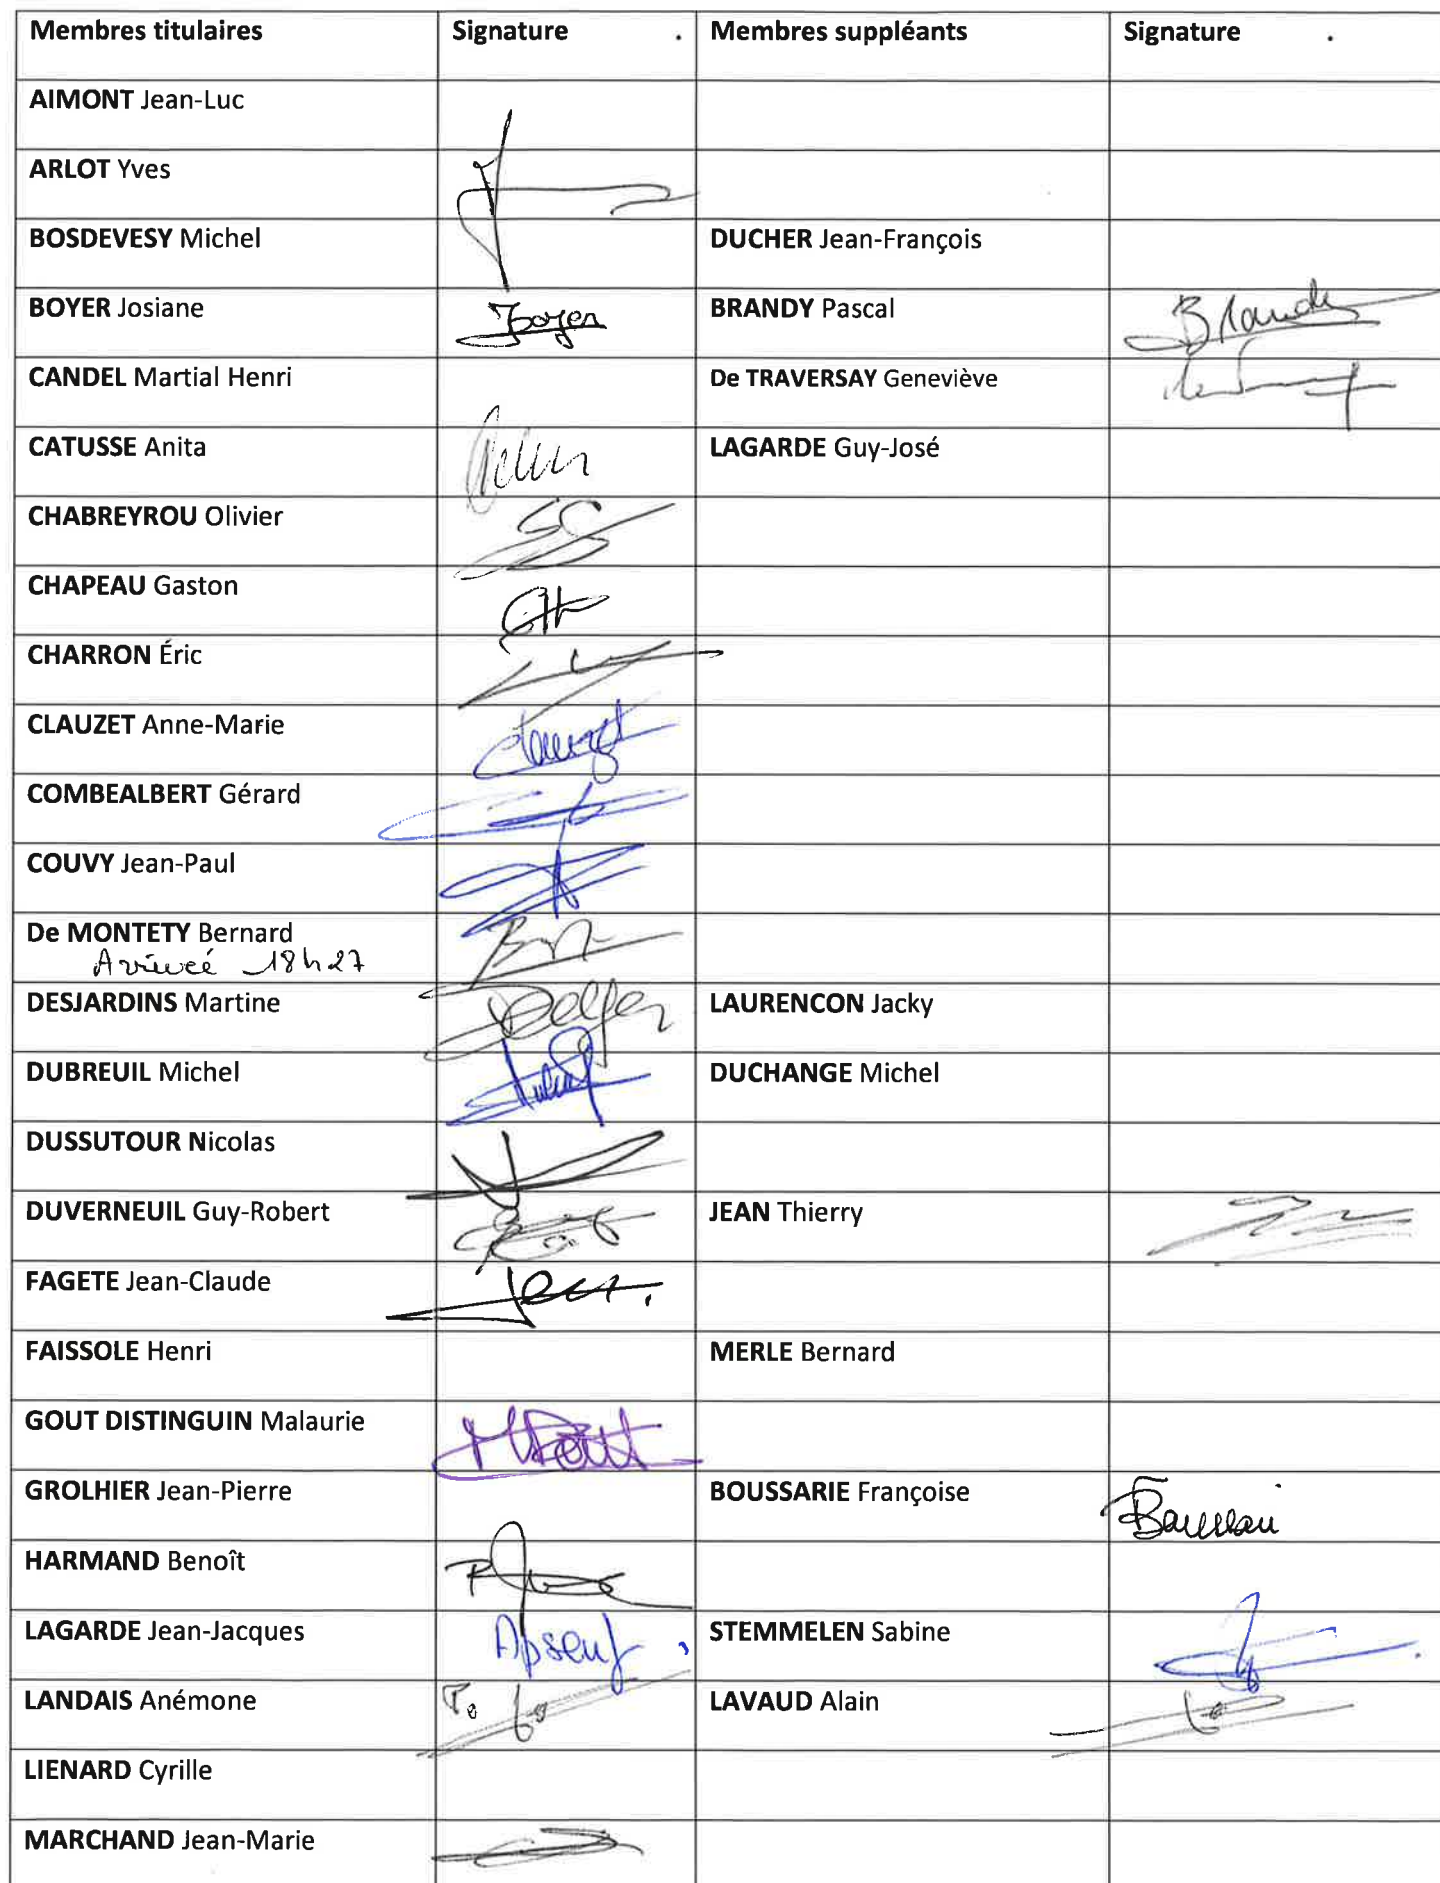 Membres titulaires Signature . Membres suppléants Signature .
AIMONT Jean-Luc
ARLOT Yves
BOSDEVESY Michel DUCHER Jean-François
BOYER Josiane Boyer BRANDY Pascal Brandy
CANDEL Martial Henri De TRAVERSAY Geneviève
CATUSSE Anita LAGARDE Guy-José
CHABREYROU Olivier
CHAPEAU Gaston
CHARRON Éric
CLAUZET Anne-Marie Clauzet
COMBEALBERT Gérard
COUVY Jean-Paul
De MONTETY Bernard
Arrivée 18h27
DESJARDINS Martine LAURENCON Jacky
DUBREUIL Michel DUCHANGE Michel
DUSSUTOUR Nicolas
DUVERNEUIL Guy-Robert JEAN Thierry
FAGETE Jean-Claude
FAISSOLE Henri MERLE Bernard
GOUT DISTINGUIN Malaurie
GROLHIER Jean-Pierre BOUSSARIE Françoise
HARMAND Benoît
LAGARDE Jean-Jacques Absent STEMMELEN Sabine
LANDAIS Anémone LAVAUD Alain
LIENARD Cyrille
MARCHAND Jean-Marie